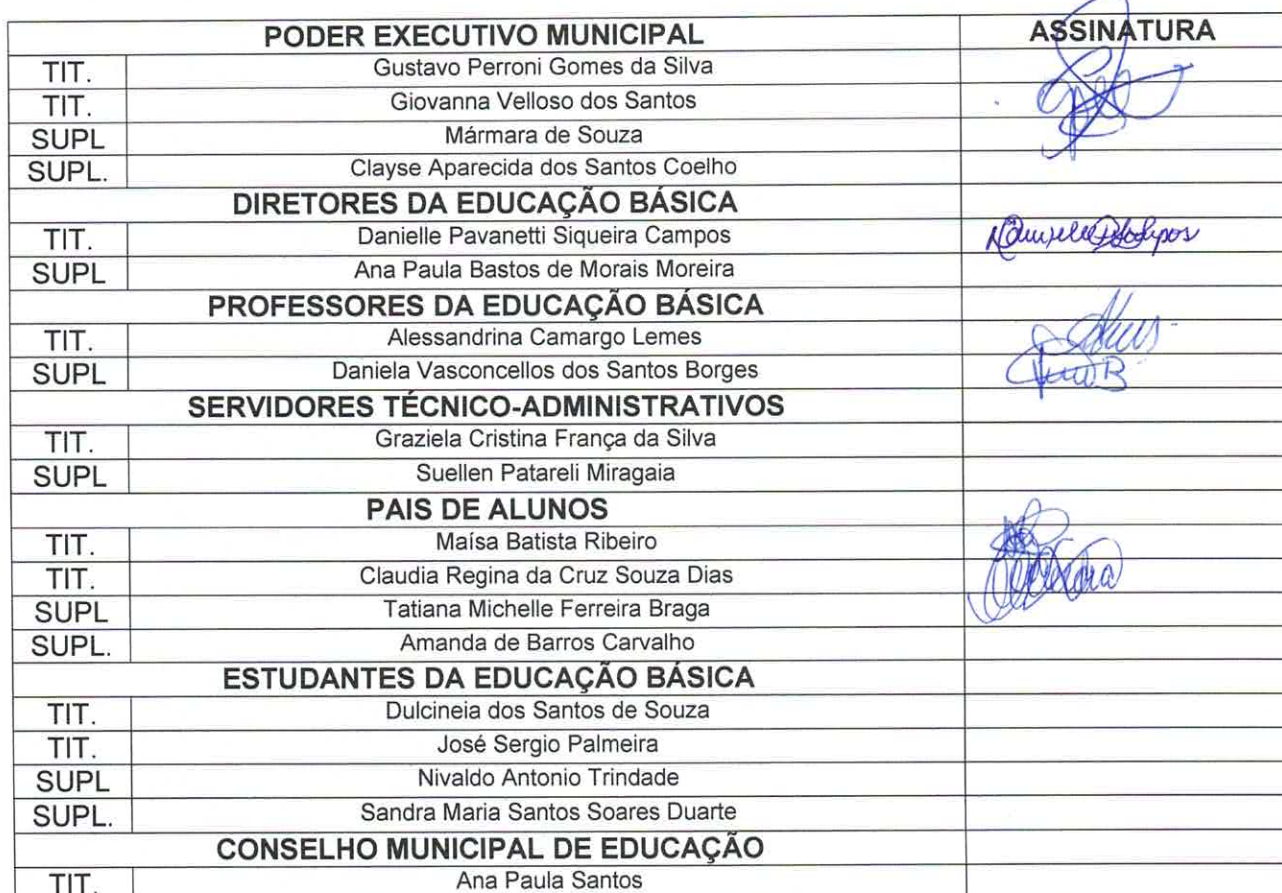 PODER EXECUTIVO MUNICIPAL ASSINATURA
TIT. Gustavo Perroni Gomes da Silva
TIT. Giovanna Velloso dos Santos
SUPL Mármara de Souza
SUPL. Clayse Aparecida dos Santos Coelho
DIRETORES DA EDUCAÇÃO BÁSICA
TIT. Danielle Pavanetti Siqueira Campos
SUPL Ana Paula Bastos de Morais Moreira
PROFESSORES DA EDUCAÇÃO BÁSICA
TIT. Alessandrina Camargo Lemes
SUPL Daniela Vasconcellos dos Santos Borges
SERVIDORES TÉCNICO-ADMINISTRATIVOS
TIT. Graziela Cristina França da Silva
SUPL Suellen Patareli Miragaia
PAIS DE ALUNOS
TIT. Maísa Batista Ribeiro
TIT. Claudia Regina da Cruz Souza Dias
SUPL Tatiana Michelle Ferreira Braga
SUPL. Amanda de Barros Carvalho
ESTUDANTES DA EDUCAÇÃO BÁSICA
TIT. Dulcineia dos Santos de Souza
TIT. José Sergio Palmeira
SUPL Nivaldo Antonio Trindade
SUPL. Sandra Maria Santos Soares Duarte
CONSELHO MUNICIPAL DE EDUCAÇÃO
TIT. Ana Paula Santos